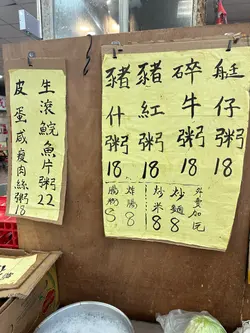 艇仔粥 18
碎牛粥 18
豬紅粥 18
豬什粥 18
外賣加
炒麵 8
炒米 8
炸腸 8
腸粉 8
生滾鯇魚片粥 22
皮蛋咸瘦肉絲粥 18